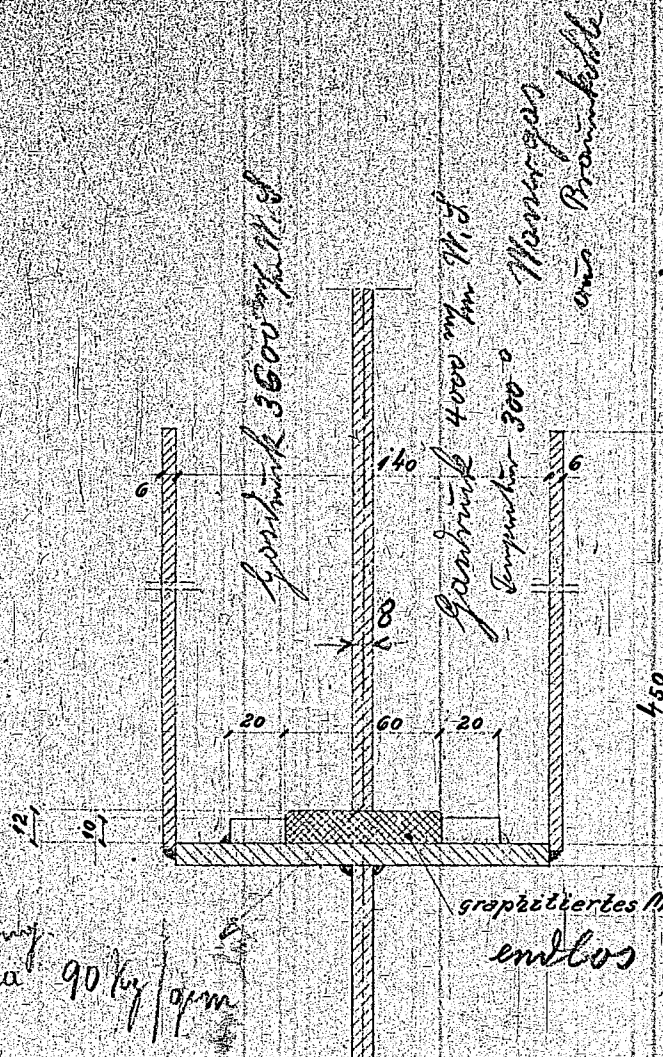 Gasdruck 3600 m/m W.S.
Gasdruck 4000 m/m W.S.
Temperatur 300°
Wassergas
aus Braunkohle
6
140
6
8
20
60
20
450
12
10
graphitiertes
endlos
90 kg/qcm